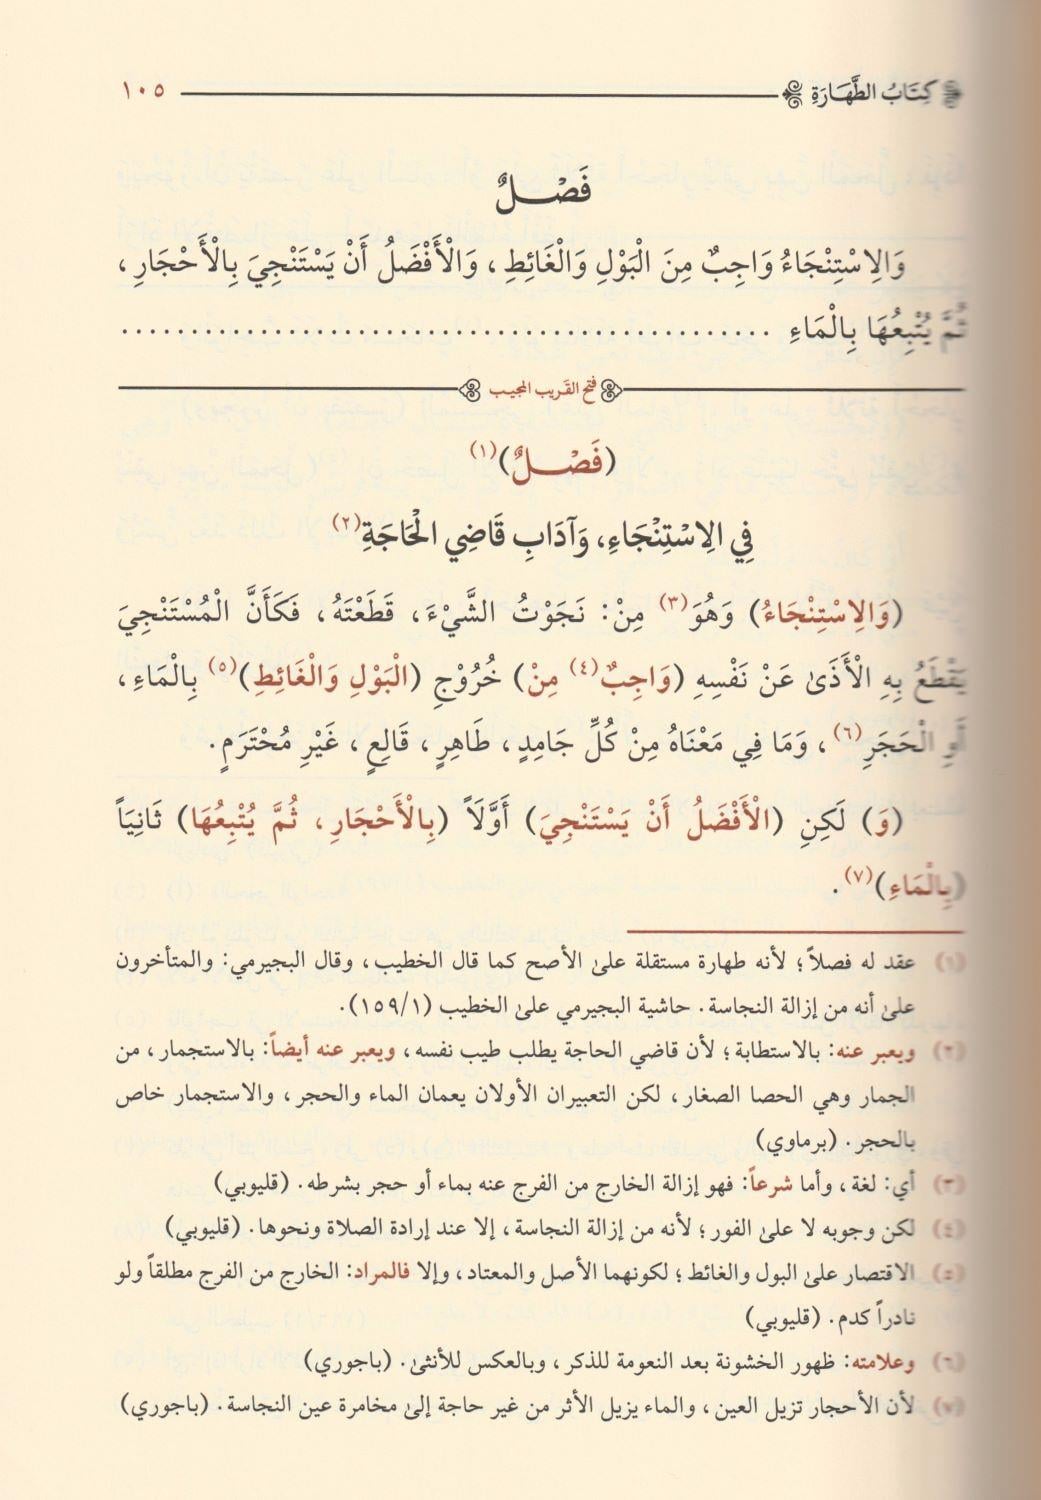 كِتَابُ الطَّهَارَةِ ١٠٥
فَصْلٌ
وَالِاسْتِنْجَاءُ وَاجِبٌ مِنَ الْبَوْلِ وَالْغَائِطِ، وَالْأَفْضَلُ أَنْ يَسْتَنْجِيَ بِالْأَحْجَارِ،
ثُمَّ يُتْبِعُهَا بِالْمَاءِ ................................................
فتح القريب المجيب
(فَصْلٌ)(١)
فِي الِاسْتِنْجَاءِ، وَآدَابِ قَاضِي الْحَاجَةِ(٢)
(وَالِاسْتِنْجَاءُ) وَهُوَ(٣) مِنْ: نَجَوْتُ الشَّيْءَ، قَطَعْتَهُ، فَكَأَنَّ الْمُسْتَنْجِيَ
يَقْطَعُ بِهِ الْأَذَىٰ عَنْ نَفْسِهِ (وَاجِبٌ(٤) مِنْ) خُرُوْجِ (الْبَوْلِ وَالْغَائِطِ)(٥) بِالْمَاءِ،
أَوِ الْحَجَرِ(٦)، وَمَا فِي مَعْنَاهُ مِنْ كُلِّ جَامِدٍ، طَاهِرٍ، قَالِعٍ، غَيْرِ مُحْتَرَمٍ.
(وَ) لَكِنِ (الْأَفْضَلُ أَنْ يَسْتَنْجِيَ) أَوَّلَاً (بِالْأَحْجَارِ، ثُمَّ يُتْبِعُهَا) ثَانِيَاً
(بِالْمَاءِ)(٧).
(١) عقد له فصلاً؛ لأنه طهارة مستقلة علىٰ الأصح كما قال الخطيب، وقال البجيرمي: والمتأخرون
علىٰ أنه من إزالة النجاسة. حاشية البجيرمي علىٰ الخطيب (١/١٥٩).
(٢) ويعبر عنه: بالاستطابة؛ لأن قاضي الحاجة يطلب طيب نفسه، ويعبر عنه أيضاً: بالاستجمار، من
الجمار وهي الحصا الصغار، لكن التعبيران الأولان يعمان الماء والحجر، والاستجمار خاص
بالحجر. (برماوي)
(٣) أي: لغة، وأما شرعاً: فهو إزالة الخارج من الفرج عنه بماء أو حجر بشرطه. (قليوبي)
(٤) لكن وجوبه لا علىٰ الفور؛ لأنه من إزالة النجاسة، إلا عند إرادة الصلاة ونحوها. (قليوبي)
(٥) الاقتصار علىٰ البول والغائط؛ لكونهما الأصل والمعتاد، وإلا فالمراد: الخارج من الفرج مطلقاً ولو
نادراً كدم. (قليوبي)
(٦) وعلامته: ظهور الخشونة بعد النعومة للذكر، وبالعكس للأنثىٰ. (باجوري)
(٧) لأن الأحجار تزيل العين، والماء يزيل الأثر من غير حاجة إلىٰ مخامرة عين النجاسة. (باجوري)